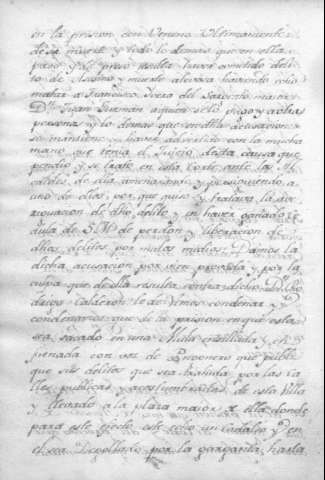 en la prision con Veneno Ultimamente
de su muerte y todo lo demas que en ella
paso y el preso resulta haver cometido deli-
to de Asesino y muerte alevosa haciendo como
matar a Francisco Juara del Sargento maior
Dn Juan Guzman a quien se lo pago y a otras
personas y lo demas que en dha acusacion
se mantiene y haver adbertido con la mucha
mano que tenia el Sujeto desta causa que
pendio y se trato en esta Corte ante los Al-
caldes de ella amenazando y persiguiendo a
uno de ellos, por que quiso y trataba la ave-
riguacion de dho delito y en haver ganado Ce-
dula de S.M. de perdon y liberacion de
dhos delitos por malos medios. Damos la
dicha acusacion por bien probada y por la
culpa que de ella resulta contra dicho Dn Ro-
drigo Calderon le devemos condenar y
condenamos que de la prision en que esta
sea sacado en una Mula ensillada y en-
frenada con voz de Pregonero que publi-
que sus delitos que sea trahido por las Ca-
lles publicas y acostumbradas de esta Villa
y llevado a la plaza maior de ella donde
para este efecto este echo un Cadalso y en
el sea Degollado por la garganta hasta